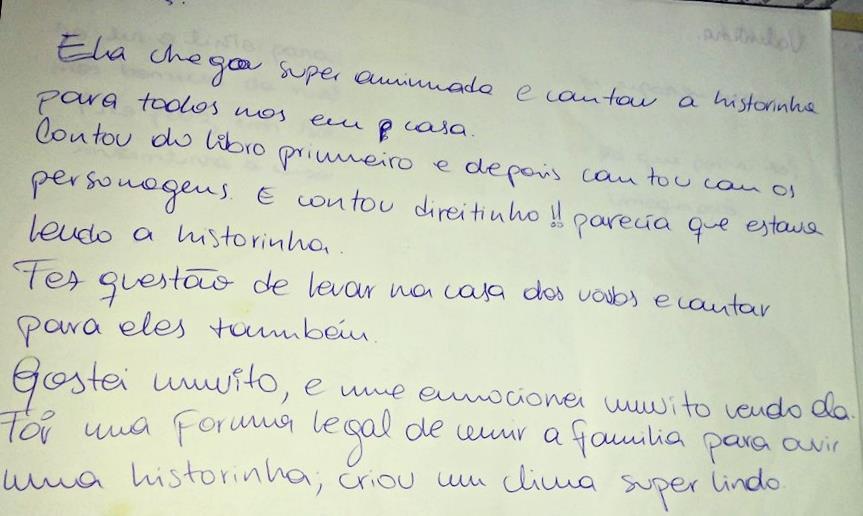 Ela chegou super animada e contou a historinha
para todos nos em casa.
Contou do libro primeiro e depois contou com os
personagens. E contou direitinho!! parecia que estava
lendo a historinha.
Fez questão de levar na casa dos vovós e contar
para eles também.
Gostei muito, e me emocionei muito vendo ela.
Foi uma forma legal de unir a familia para ouvir
uma historinha, criou um clima super lindo.